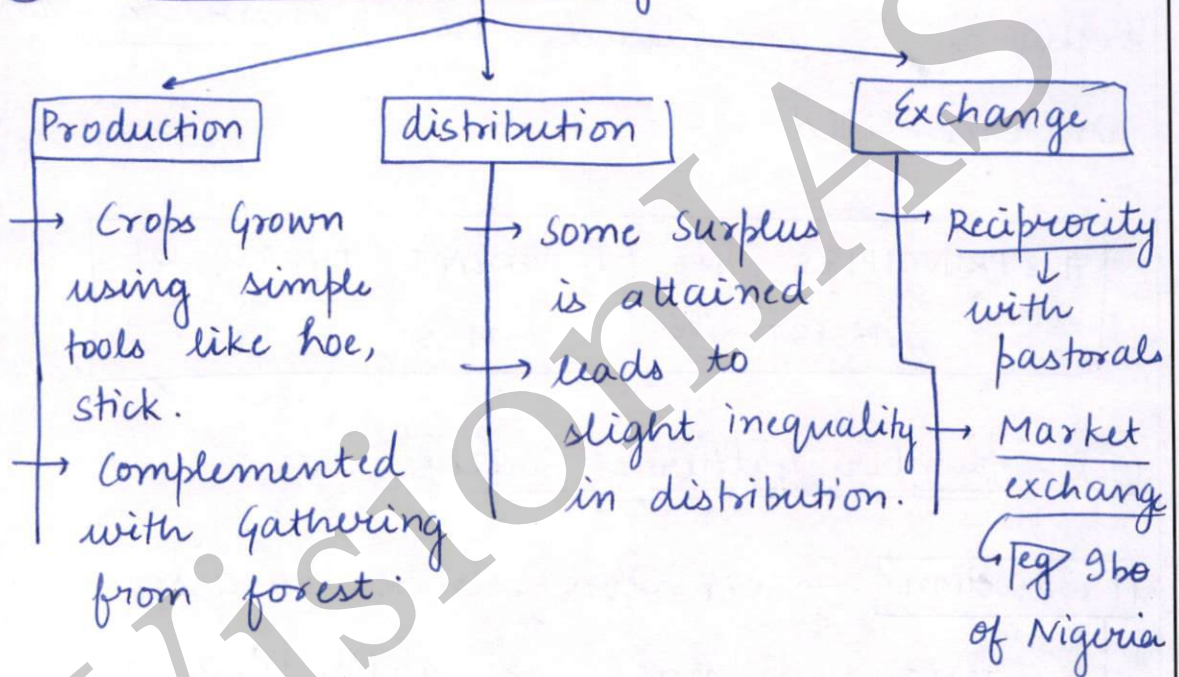 Production
→ Crops Grown
using simple
tools like hoe,
stick.
→ Complemented
with Gathering
from forest.
distribution
→ some surplus
is attained
→ leads to
slight inequality
in distribution.
Exchange
→ Reciprocity
↓
with
pastorals
→ Market
exchang
eg Igbo
of Nigeria
VisionIAS